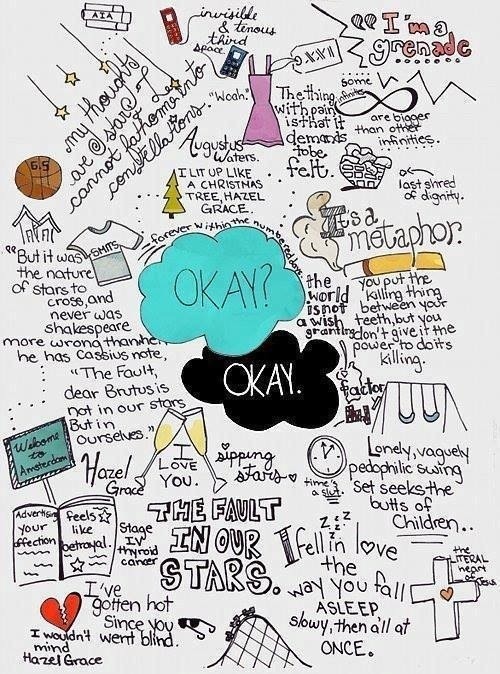 AIA
invisible
& tenous
third
space
"I'm a
grenade
my thoughts
are stars I
cannot fathom into
constellations.
"Woah."
The thing
with pain
is that it
demands
to be
felt.
some
infinities
are bigger
than other
infinities.
Augustus
Waters.
6.5
I LIT UP LIKE
A CHRISTMAS
TREE, HAZEL
GRACE.
last shred
of dignity.
It's a
metaphor.
you put the
killing thing
between your
teeth, but you
don't give it the
power to do its
killing.
SMITS
forever within the numbered days
OKAY?
OKAY.
"But it was
the nature
of stars to
cross, and
never was
shakespeare
more wrong than when
he has Cassius note,
"The Fault,
dear Brutus is
not in our stars
But in
ourselves."
the
world
is not
a wish
granting
factory
Welcome
to
Amsterdam
Hazel
Grace
I
LOVE
YOU.
sipping
stars
time's
a slut.
Lonely, vaguely
pedophilic swing
set seeks the
butts of
Children..
Advertising
your
affection
feels
like
betrayal.
Stage
IV
thyroid
cancer
THE FAULT
IN OUR
STARS.
z z z
I fell in love
the
way you fall
ASLEEP
slowy, then all at
ONCE.
the
LITERAL
heart
of Jesus.
I've
gotten hot
Since you
went blind.
I wouldn't
mind
Hazel Grace